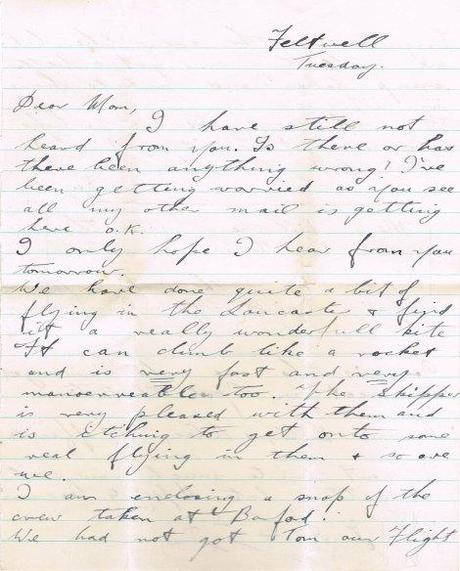 Feltwell
Tuesday.
Dear Mom,
I have still not
heard from you. Is there or has
there been anything wrong! I've
been getting worried as you see
all my other mail is getting
here O.K.
I only hope I hear from you
tomorrow.
We have done quite a bit of
flying in the Lancaster & find
it a really wonderfull kite
It can climb like a rocket
and is very fast and very
manoerveable too. The Skipper
is very pleased with them and
is itching to get onto some
real flying in them & so are
we.
I am enclosing a snap of the
crew taken at Barford.
We had not got Tom our Flight